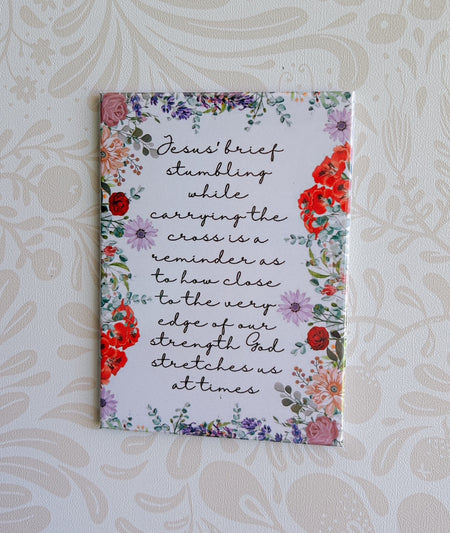 Jesus' brief
stumbling
while
carrying the
cross is a
reminder as
to how close
to the very
edge of our
strength God
stretches us
at times